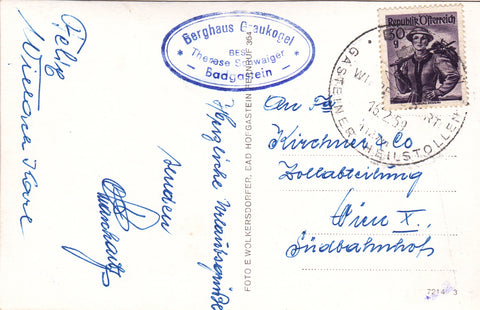 Berghaus Graukogel
BES.
Therese Schwaiger
- Badgastein -
Republik Österreich
30
g
GASTEINER HEILSTOLLEN
Herzliche Urlaubsgrüße
senden
Felix
An Fa
Kirchner & Co
Zollabteilung
Wien X.,
Südbahnhof
FOTO E. WOLKERSDORFER, BAD HOFGASTEIN FERNRUF 364
7214 3